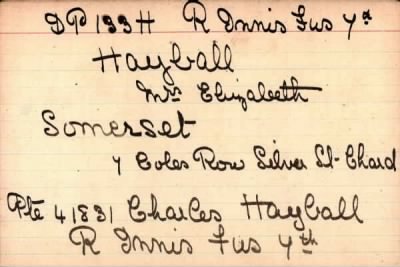 DP 133 H R Innis Fus 7th
Hayball
Mrs Elizabeth
Somerset
7 Coles Row Silver St-Chard
Pte 41831 Charles Hayball
R Innis Fus 7th